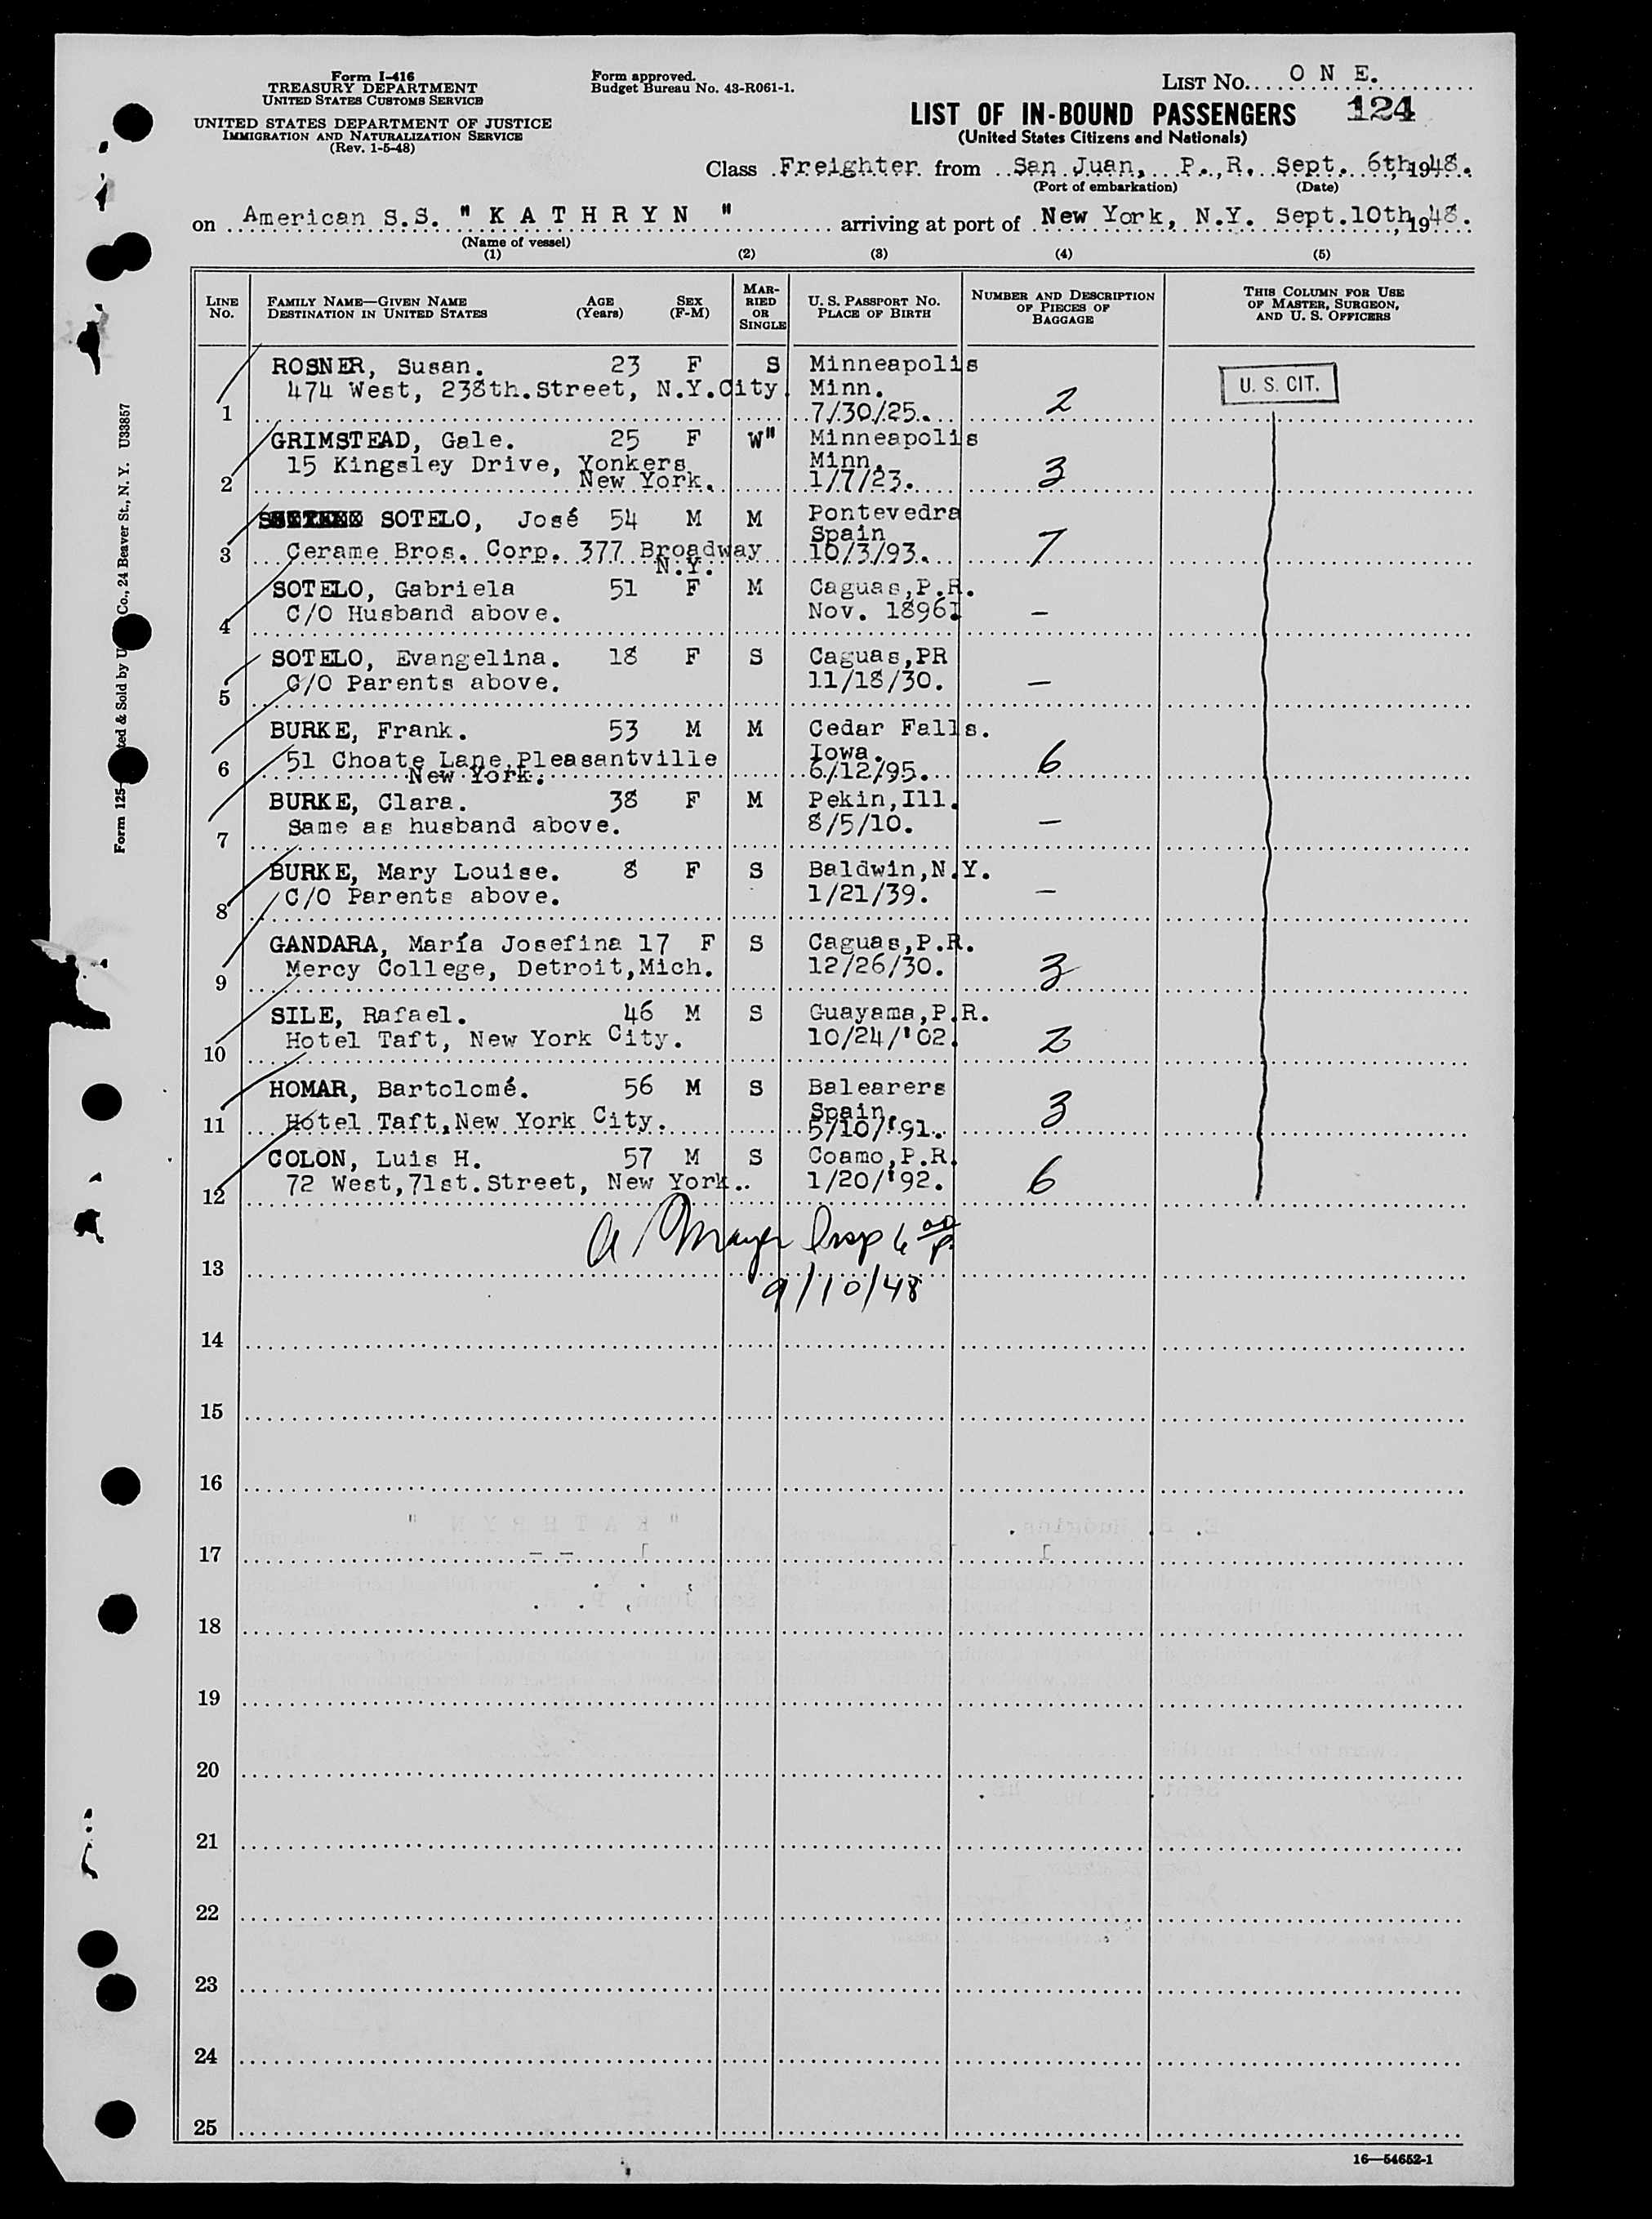 Form I-416
TREASURY DEPARTMENT
UNITED STATES CUSTOMS SERVICE
UNITED STATES DEPARTMENT OF JUSTICE
IMMIGRATION AND NATURALIZATION SERVICE
(Rev. 1-5-48)
Form approved.
Budget Bureau No. 43-R061-1.
LIST No. O N E.
LIST OF IN-BOUND PASSENGERS 124
(United States Citizens and Nationals)
Class Freighter from San Juan, P.,R. Sept. 6th, 1948.
(Port of embarkation) (Date)
on American S.S. " K A T H R Y N " arriving at port of New York, N.Y. Sept.10th, 1948.
(Name of vessel)
(1) (2) (3) (4) (5)
LINE No. FAMILY NAME—GIVEN NAME DESTINATION IN UNITED STATES AGE (Years) SEX (F-M) MARRIED OR SINGLE U. S. PASSPORT NO. PLACE OF BIRTH NUMBER AND DESCRIPTION OF PIECES OF BAGGAGE THIS COLUMN FOR USE OF MASTER, SURGEON, AND U. S. OFFICERS
ROSNER, Susan. 23 F S Minneapolis
474 West, 238th.Street, N.Y.City. Minn. 2 U. S. CIT.
1 7/30/25.
GRIMSTEAD, Gale. 25 F W" Minneapolis
15 Kingsley Drive, Yonkers Minn. 3
2 New York. 1/7/23.
SOTELO, José 54 M M Pontevedra
Spain
3 Cerame Bros. Corp. 377 Broadway 10/3/93. 7
N.Y.
SOTELO, Gabriela 51 F M Caguas,P.R.
C/O Husband above. Nov. 1896. —
4
SOTELO, Evangelina. 18 F S Caguas,PR
5 C/O Parents above. 11/18/30. —
BURKE, Frank. 53 M M Cedar Falls.
51 Choate Lane,Pleasantville Iowa. 6
6 New York. 6/12/95.
BURKE, Clara. 38 F M Pekin,Ill.
Same as husband above. 8/5/10. —
7
BURKE, Mary Louise. 8 F S Baldwin,N.Y.
C/O Parents above. 1/21/39. —
8
GANDARA, María Josefina 17 F S Caguas,P.R.
Mercy College, Detroit,Mich. 12/26/30. 3
9
SILE, Rafael. 46 M S Guayama,P.R.
Hotel Taft, New York City. 10/24/'02. 2
10
HOMAR, Bartolomé. 56 M S Balearers
Spain. 3
11 Hotel Taft,New York City. 5/10/'91.
COLON, Luis H. 57 M S Coamo,P.R.
72 West,71st.Street, New York.. 1/20/'92. 6
12
13
9/10/48
14
15
16
17
18
19
20
21
22
23
24
25
16—54652-1
Co., 24 Beaver St., N. Y. U33857